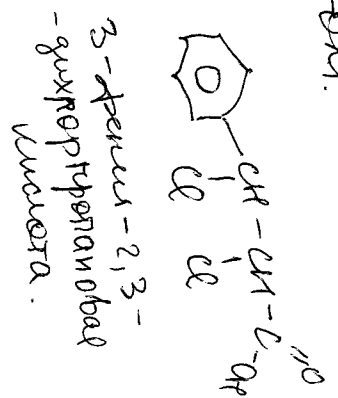 CH – CH – C
O
OH
Cl Cl
3-фенил-2,3-
-дихлорпропановая
кислота.